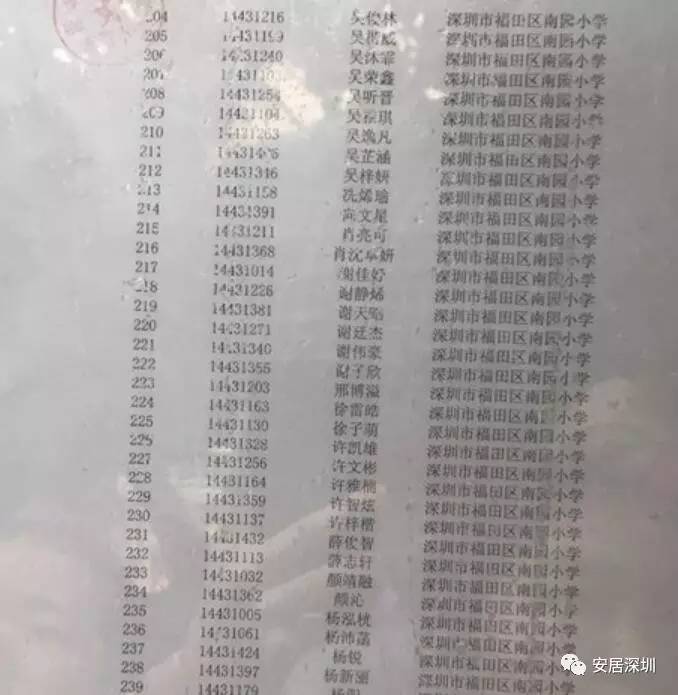 204 14431216 吴俊林 深圳市福田区南园小学
205 14431199 吴 威 深圳市福田区南园小学
206 14431240 吴沐霏 深圳市福田区南园小学
207 吴荣鑫 深圳市福田区南园小学
208 14431254 吴听晋 深圳市福田区南园小学
209 14431104 吴 琪 深圳市福田区南园小学
210 14431263 吴逸凡 深圳市福田区南园小学
211 吴芷涵 深圳市福田区南园小学
212 14431346 吴梓妍 深圳市福田区南园小学
213 14431158 冼烯瑜 深圳市福田区南园小学
214 14431391 向文星 深圳市福田区南园小学
215 14431211 肖亮可 深圳市福田区南园小学
216 14431368 肖沈 妍 深圳市福田区南园小学
217 14431014 谢佳妤 深圳市福田区南园小学
218 14431226 谢静烯 深圳市福田区南园小学
219 14431381 谢天 深圳市福田区南园小学
220 14431271 谢廷杰 深圳市福田区南园小学
221 14431340 谢伟豪 深圳市福田区南园小学
222 14431355 谢子欣 深圳市福田区南园小学
223 14431203 邢博溢 深圳市福田区南园小学
224 14431163 徐雷皓 深圳市福田区南园小学
225 14431130 徐子萌 深圳市福田区南园小学
226 14431328 许凯雄 深圳市福田区南园小学
227 14431256 许文彬 深圳市福田区南园小学
228 14431164 许雅楠 深圳市福田区南园小学
229 14431359 许智炫 深圳市福田区南园小学
230 14431137 许梓楷 深圳市福田区南园小学
231 14431432 薛俊智 深圳市福田区南园小学
232 14431113 薛志轩 深圳市福田区南园小学
233 14431032 颜靖融 深圳市福田区南园小学
234 14431362 颜沁 深圳市福田区南园小学
235 14431005 杨泓桄 深圳市福田区南园小学
236 14431061 杨沛菡 深圳市福田区南园小学
237 14431424 杨锐 深圳市福田区南园小学
238 14431397 杨新丽 深圳市福田区南园小学
239 14431179 杨
安居深圳